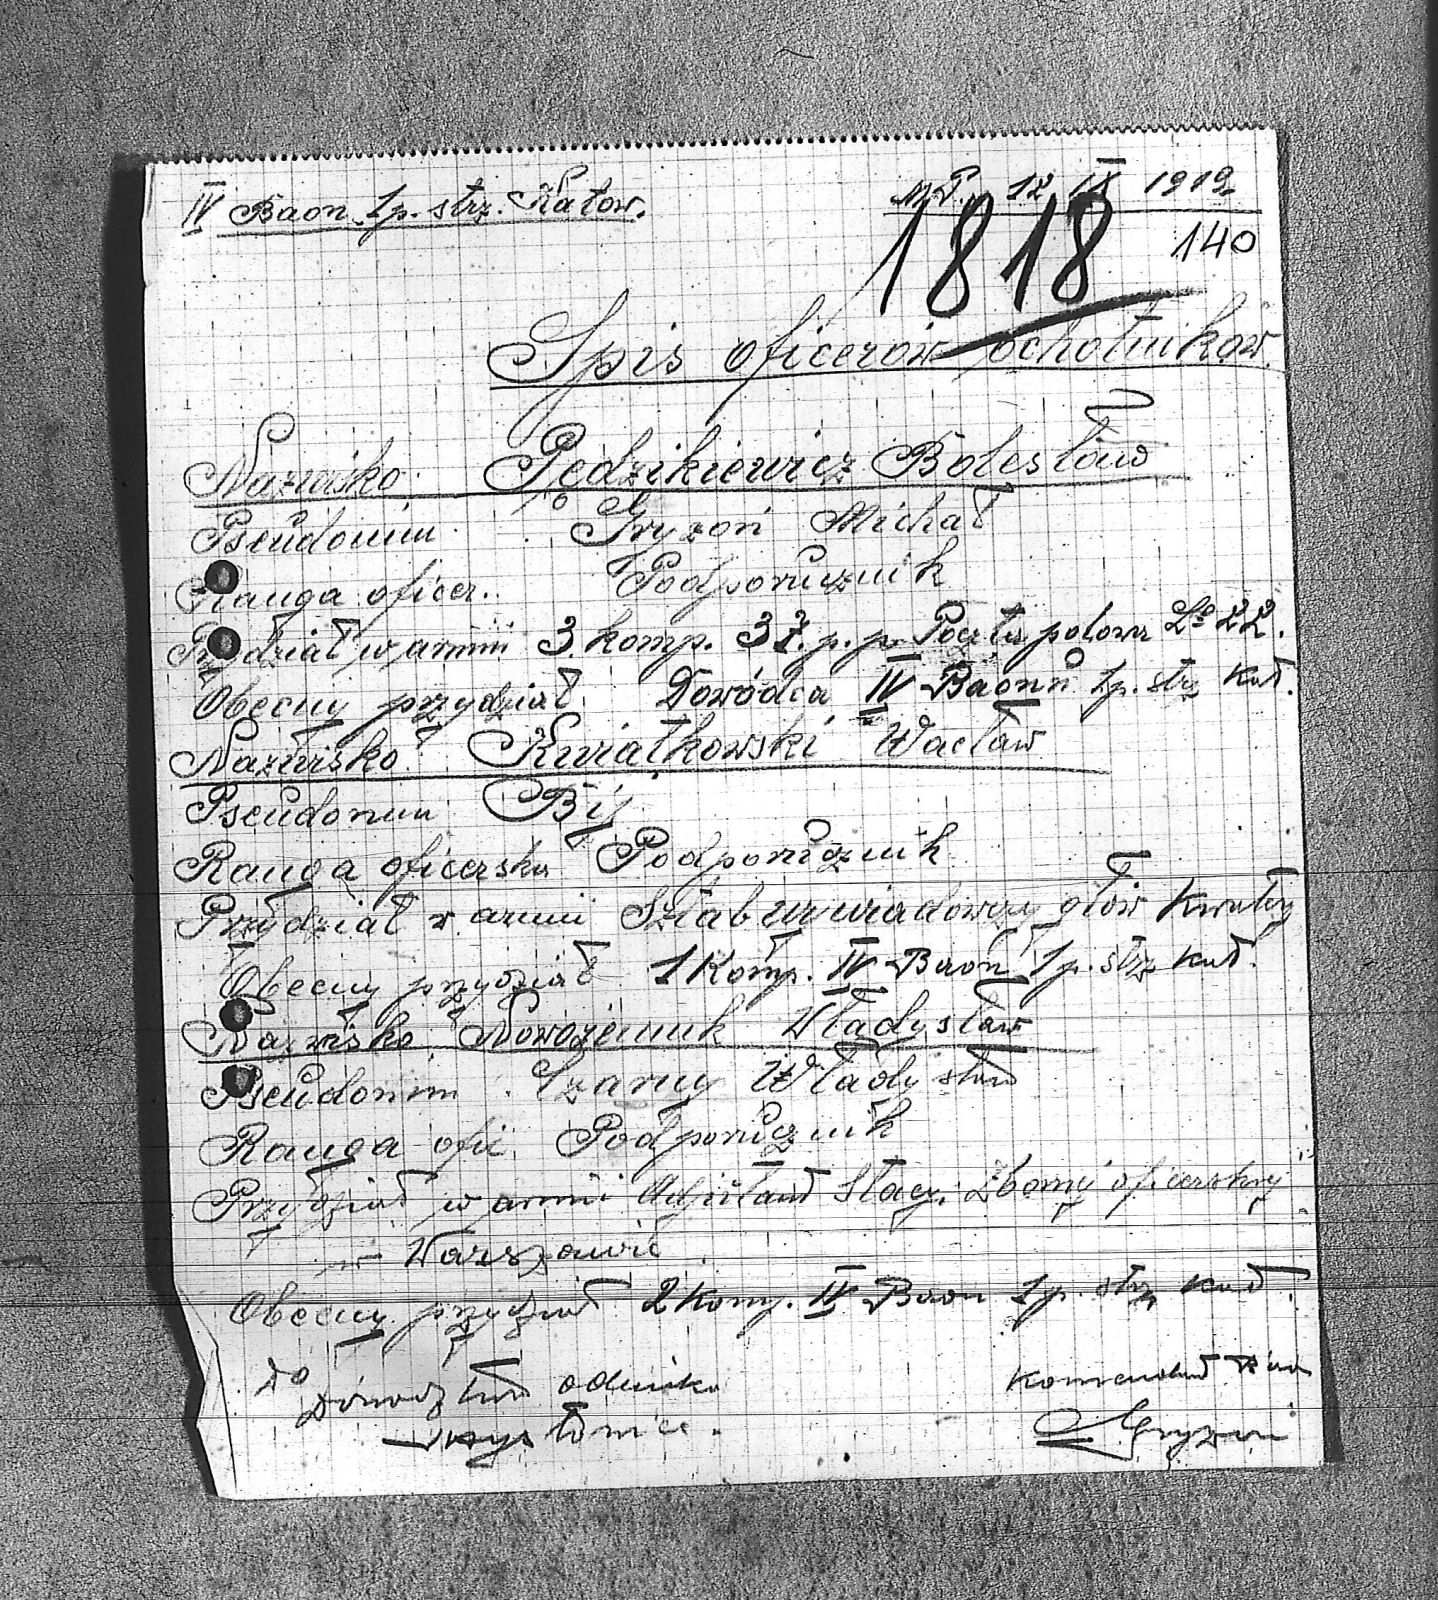 IV Baon 1 p. strz. Katow.
M.P. 12 IX 1919.
1818 140
Spis oficerów ochotników
Nazwisko Pędzikiewicz Bolesław
Pseudonim Gryzoń Michał
Ranga oficer. Podporucznik
Przydział w armii 3. komp. 37. p. p. Poczta polowa 22.
Obecny przydział Dowódca IV Baonu 1 p. strz. Kat.
Nazwisko Kwiatkowski Wacław
Pseudonim
Ranga oficerska Podporucznik
Przydział w armii Sztab wywiadowczy głów Kwatery
Obecny przydział 1 Komp. IV Baon 1 p. strz Kat.
Nazwisko Władysław
Pseudonim Czarny Władysław
Ranga ofic. Podporucznik
Przydział w armii Adjutant Stacji Zbornej oficerskiej
w Warszawie
Obecny przydział 2 Komp. IV Baon 1 p. strz Kat.
Do
Dowództwa odcinka Komendant
Gryzoń